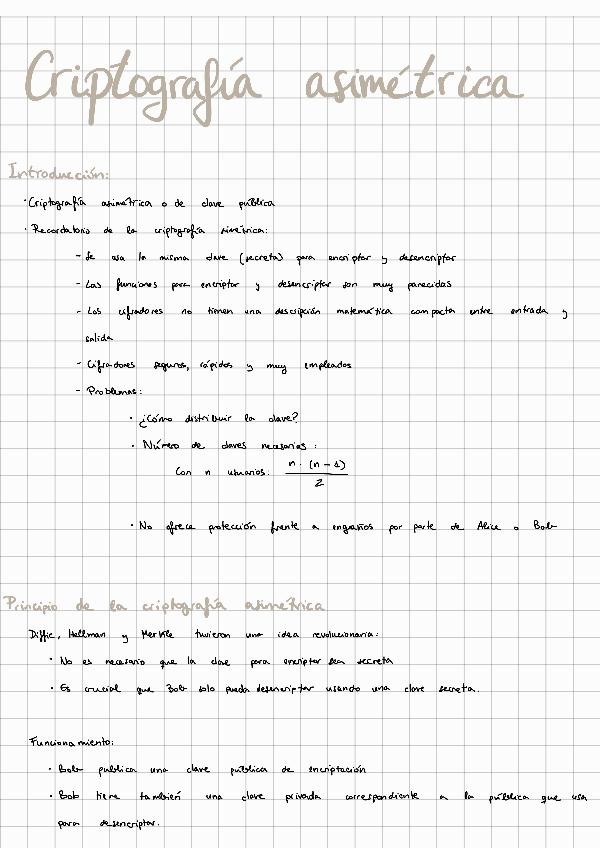 Criptografía asimétrica
Introducción:
· Criptografía asimétrica o de clave pública
· Recordatorio de la criptografía simétrica:
- Se usa la misma clave (secreta) para encriptar y desencriptar
- Las funciones para encriptar y desencriptar son muy parecidas
- Los cifradores no tienen una descripción matemática compacta entre entrada y
salida
- Cifradores seguros, rápidos y muy empleados
- Problemas:
· ¿Cómo distribuir la clave?
· Número de claves necesarias:
Con n usuarios: n · (n - 1)
2
· No ofrece protección frente a engaños por parte de Alice o Bob
Principio de la criptografía asimétrica
Diffie, Hellman y Merkle tuvieron una idea revolucionaria:
· No es necesario que la clave para encriptar sea secreta
· Es crucial que Bob solo pueda desencriptar usando una clave secreta.
Funcionamiento:
· Bob publica una clave pública de encriptación
· Bob tiene también una clave privada correspondiente a la pública que usa
para desencriptar.